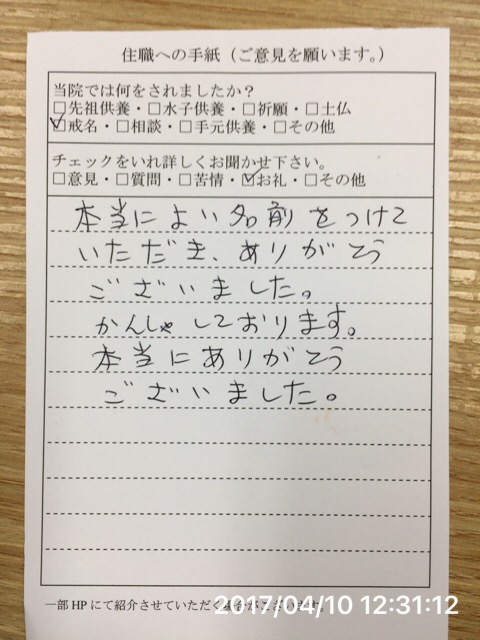 住職への手紙（ご意見を願います。）
当院では何をされましたか？
□先祖供養・□水子供養・□祈願・□土仏
☑戒名・□相談・□手元供養・□その他
チェックをいれ詳しくお聞かせ下さい。
□意見・□質問・□苦情・☑お礼・□その他
本当によい名前をつけて
いただき、ありがとう
ございました。
かんしゃしております。
本当にありがとう
ございました。
一部HPにて紹介させていただく
2017/04/10 12:31:12